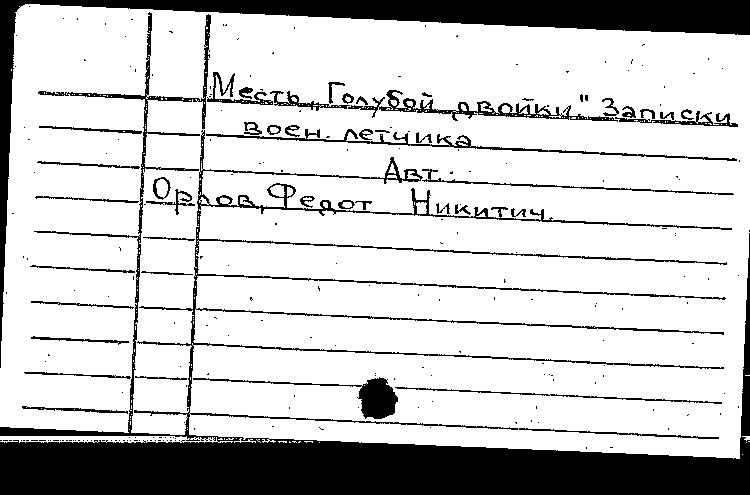 Месть „Голубой двойки." Записки
воен. летчика
Авт.:
Орлов, Федот Никитич.